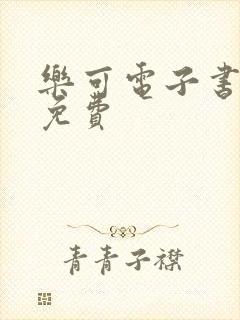 樂可電子書
免費
青青子襟